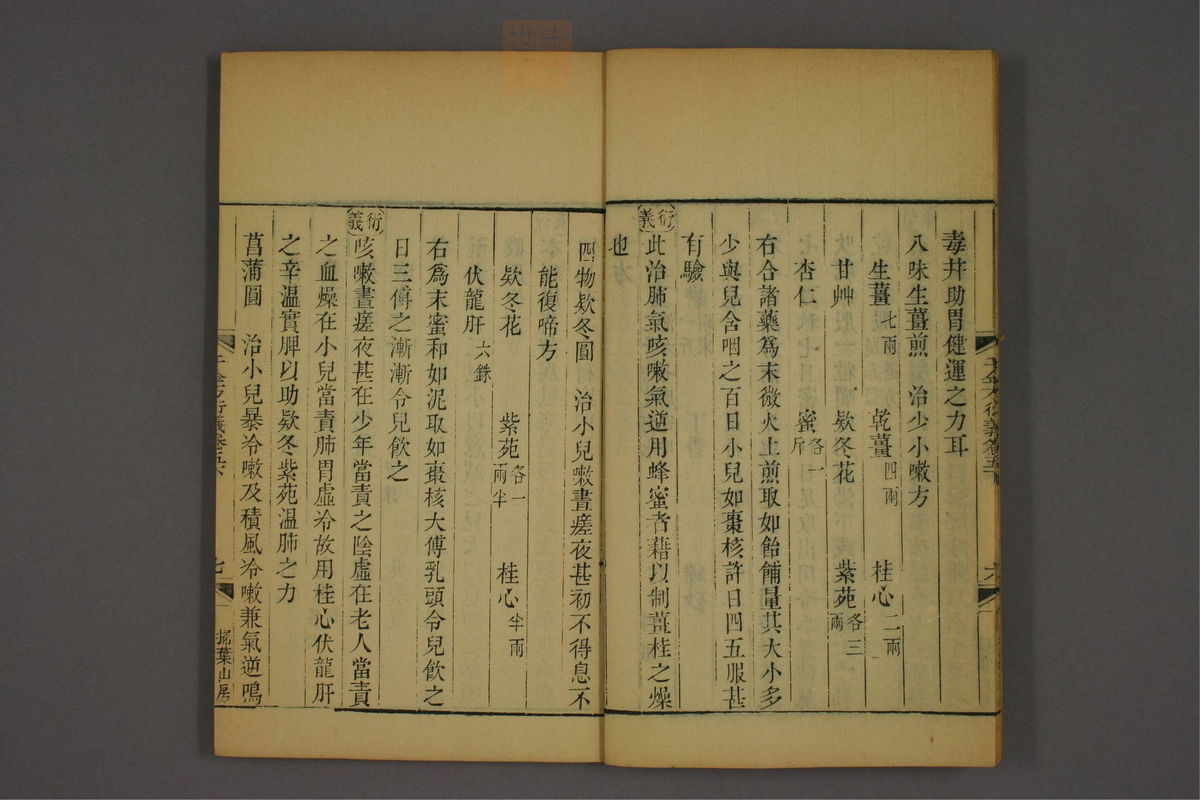 毒幷助胃健運之力耳
八味生薑煎 治少小嗽方
生薑七兩 乾薑四兩 桂心二兩
甘艸 欵冬花 紫苑各三兩
杏仁 蜜各一斤
右合諸藥爲末微火上煎取如飴餔量其大小多
少與兒含咽之百日小兒如棗核許日四五服甚
有驗
衍義 此治肺氣咳嗽氣逆用蜂蜜者藉以制薑桂之燥
也
四物欵冬圓 治小兒嗽晝瘥夜甚初不得息不
能復啼方
欵冬花 紫苑各一兩半 桂心半兩
伏龍肝六銖
右爲末蜜和如泥取如棗核大傅乳頭令兒飲之
日三傅之漸漸令兒飲之
衍義 咳嗽晝瘥夜甚在少年當責之陰虛在老人當責
之血燥在小兒當責肺胃虛冷故用桂心伏龍肝
之辛温實脾以助欵冬紫苑温肺之力
菖蒲圓 治小兒暴冷嗽及積風冷嗽兼氣逆鳴
千金方衍義卷五
七
掃葉山房